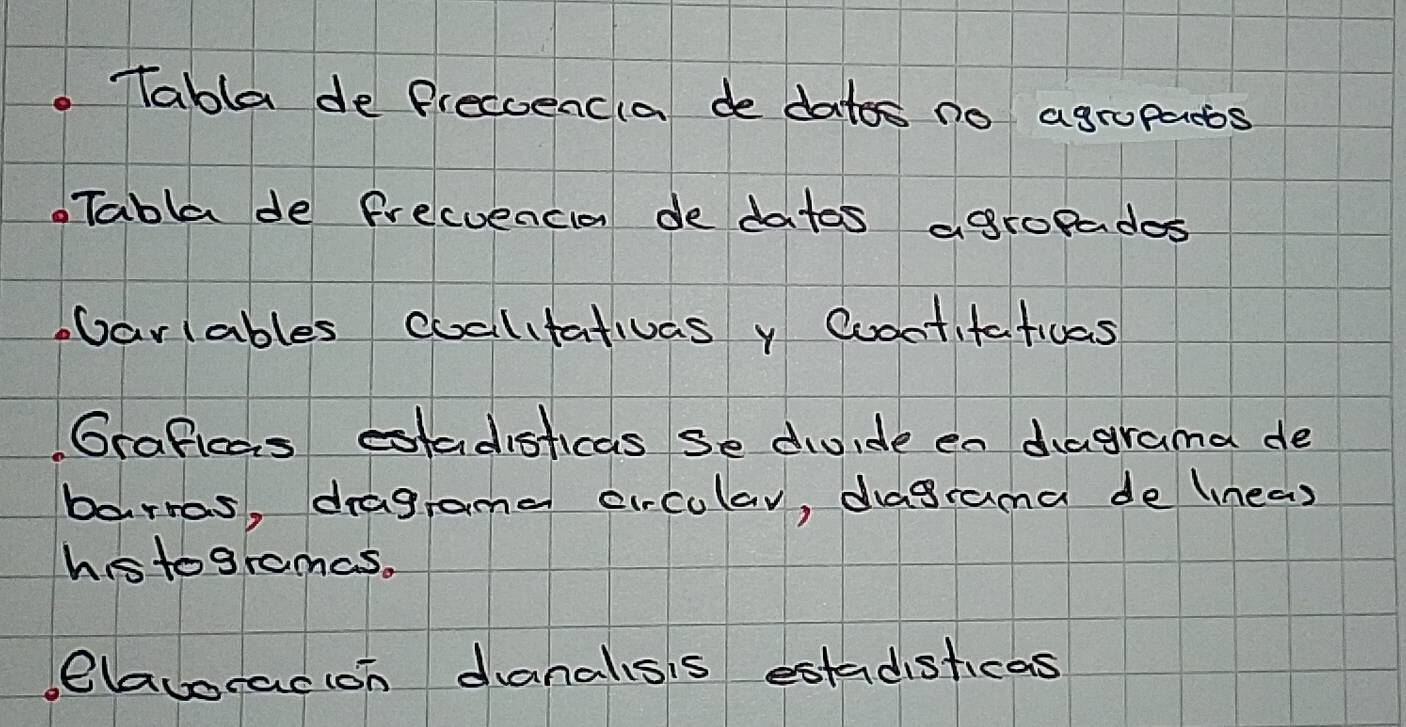 • Tabla de frecuencia de datos no agrupados
• Tabla de frecuencia de datos agrupados
• Variables cualitativas y cuantitativas
. Graficas estadisticas se divide en diagrama de
barras, diagrama circular, diagrama de lineas
histogramas.
. elavoración dianalisis estadisticas